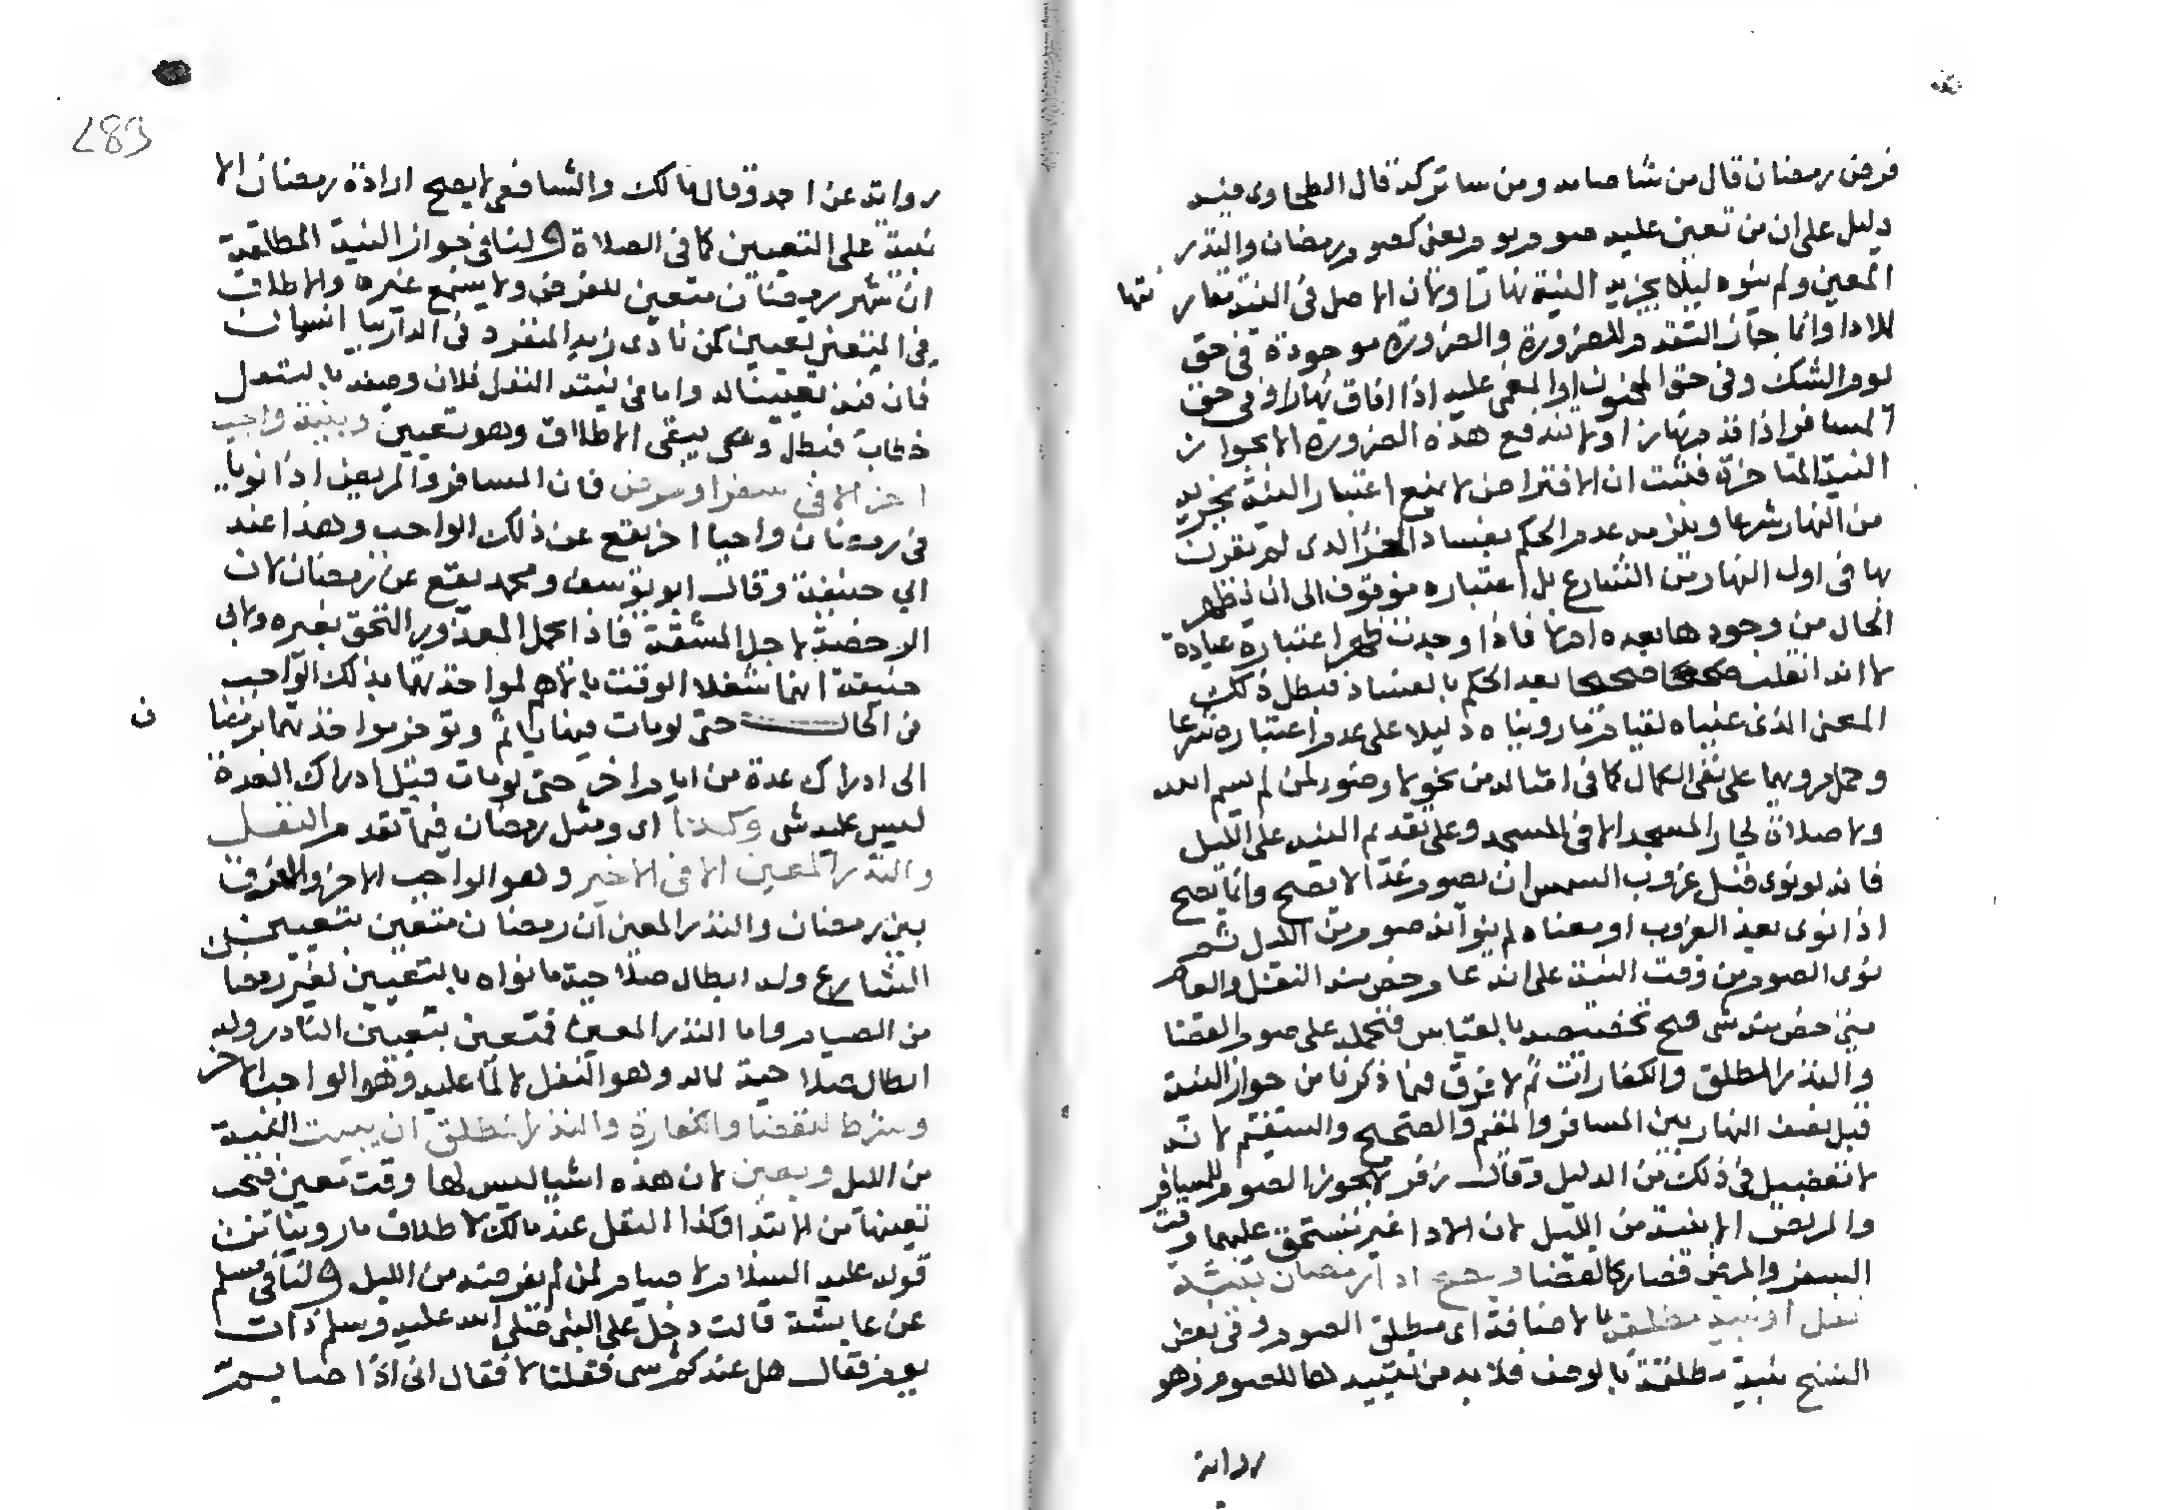 فرض رمضان قال من شا صامه ومن سا تركه قال الطحاوى فيه
دليل على ان من تعين عليه صوم يوم بعينه كصوم رمضان والنذر
المعين ولم ينوه ليلا يجزيه النية نهارا ولان الاصل فى النية
للادا وانما جاز التقدم للضرورة والضرورة موجودة فى حق
يوم الشك وفى حق المجنون او المغمى عليه اذا افاق نهارا وفى حق
المسافر اذا قدم نهارا ولا تندفع هذه الضرورة الا بجواز
النية المتاخرة فثبت ان الافتراض لا يمنع اعتبار النية بجزية
من النهار شرعا ويلزمه عدم الحكم بفساد الجزء الذى لم يقرن
بها فى اول النهار من الشارع بل اعتباره موقوف الى ان يظهر
الحال من وجودها بعده اولا فاذا وجدت ظهر اعتباره عبادة
لا انه انقلب صحيحا بعد الحكم بالفساد فبطل ذلك
المعنى الذى عيناه لقيام ما رويناه دليلا على عدم اعتباره شرعا
وحمل مرويهما على نفى الكمال كما فى امثاله من نحو لا وضوء لمن لم يسم الله
ولا صلاة لجار المسجد الا فى المسجد وعلى تقديم النية على الليل
فانه لو نوى قبل غروب الشمس ان يصوم غدا لا يصح وانما يصح
اذا نوى بعد الغروب او معناه لم ينو انه صوم من الليل
نوى الصوم من وقت النية على انه عام خص منه النفل والعام
متى خص منه شى صح تخصيصه بالقياس فنحمله على صوم القضا
والنذر المطلق والكفارات ثم لا فرق فيما ذكرنا من جواز النية
قبل نصف النهار بين المسافر والمقيم والصحيح والسقيم لانه
لا تفصيل فى ذلك من الدليل وقال زفر لا يجوز الصوم للمسافر
والمريض الا بنية من الليل لان الادا غير مستحق عليهما وقت
السفر والمرض فصار كالقضا ويصح ادا رمضان بنية
نفل او نية مطلقة بالاضافة اى مطلق الصوم وفى بعض
النسخ بنية مطلقة بالوصف فلا بد من تقييدها للصوم وهو
رواية
287
رواية عن احمد وقال مالك والشافعى لا يصح ادا رمضان الا
بنية على التعيين كما فى الصلاة ولنا فى جواز النية المطلقة
ان شهر رمضان متعين للفرض ولا يسع غيره والاطلاق
فى المتعين تعيين كمن نادى زيد المنفرد فى الدار يا انسان
فان فيه تعيينا له واما فى نية النفل فلان وصفه بالنفل
خطأ فبطل وهى يبقى الاطلاق وهو تعيين وبنية واجب
اخر الا فى سفر او مرض فان المسافر والمريض اذا نويا
فى رمضان واجبا اخر يقع عن ذلك الواجب وهذا عند
ابي حنيفة وقال ابو يوسف ومحمد يقع عن رمضان لان
الرخصة لاجل المشقة فاذا تحمل المعذور التحق بغيره ولابى
حنيفة انهما شغلا الوقت بالاهم لمواخذتهما بذلك الواجب
فى الحال حتى لو مات فيها ياثم وتوخر مواخذتهما برمضان
الى ادراك عدة من ايام اخر حتى لو مات قبل ادراك العدة
ليس عليه شى وكذا اى ومثل رمضان فيما تقدم النفل
والنذر المعين الا فى الاخير وهو الواجب الاخر والفرق
بين رمضان والنذر المعين ان رمضان متعين بتعيين
الشارع وله ابطال صلاحية ما نواه بالتعيين لغير رمضا
من الصيام واما النذر المعين فمتعين بتعيين الناذر وله
ابطال صلاحية ماله وهو النفل لا لما عليه وهو الواجب الاخر
وشرط للقضا والكفارة والنذر المطلق ان يبيت النية
من الليل ويعين لان هذه اشيا ليس لها وقت معين فيجب
تعيينها من الابتدا وكذا النفل عند مالك لاطلاق ما روينا من
قوله عليه السلام لا صيام لمن لم يفرضه من الليل ولنا فى مسلم
عن عايشة قالت دخل على النبى صلى الله عليه وسلم ذات
يوم فقال هل عندكم شى فقلنا لا فقال انى اذا صايم ثم